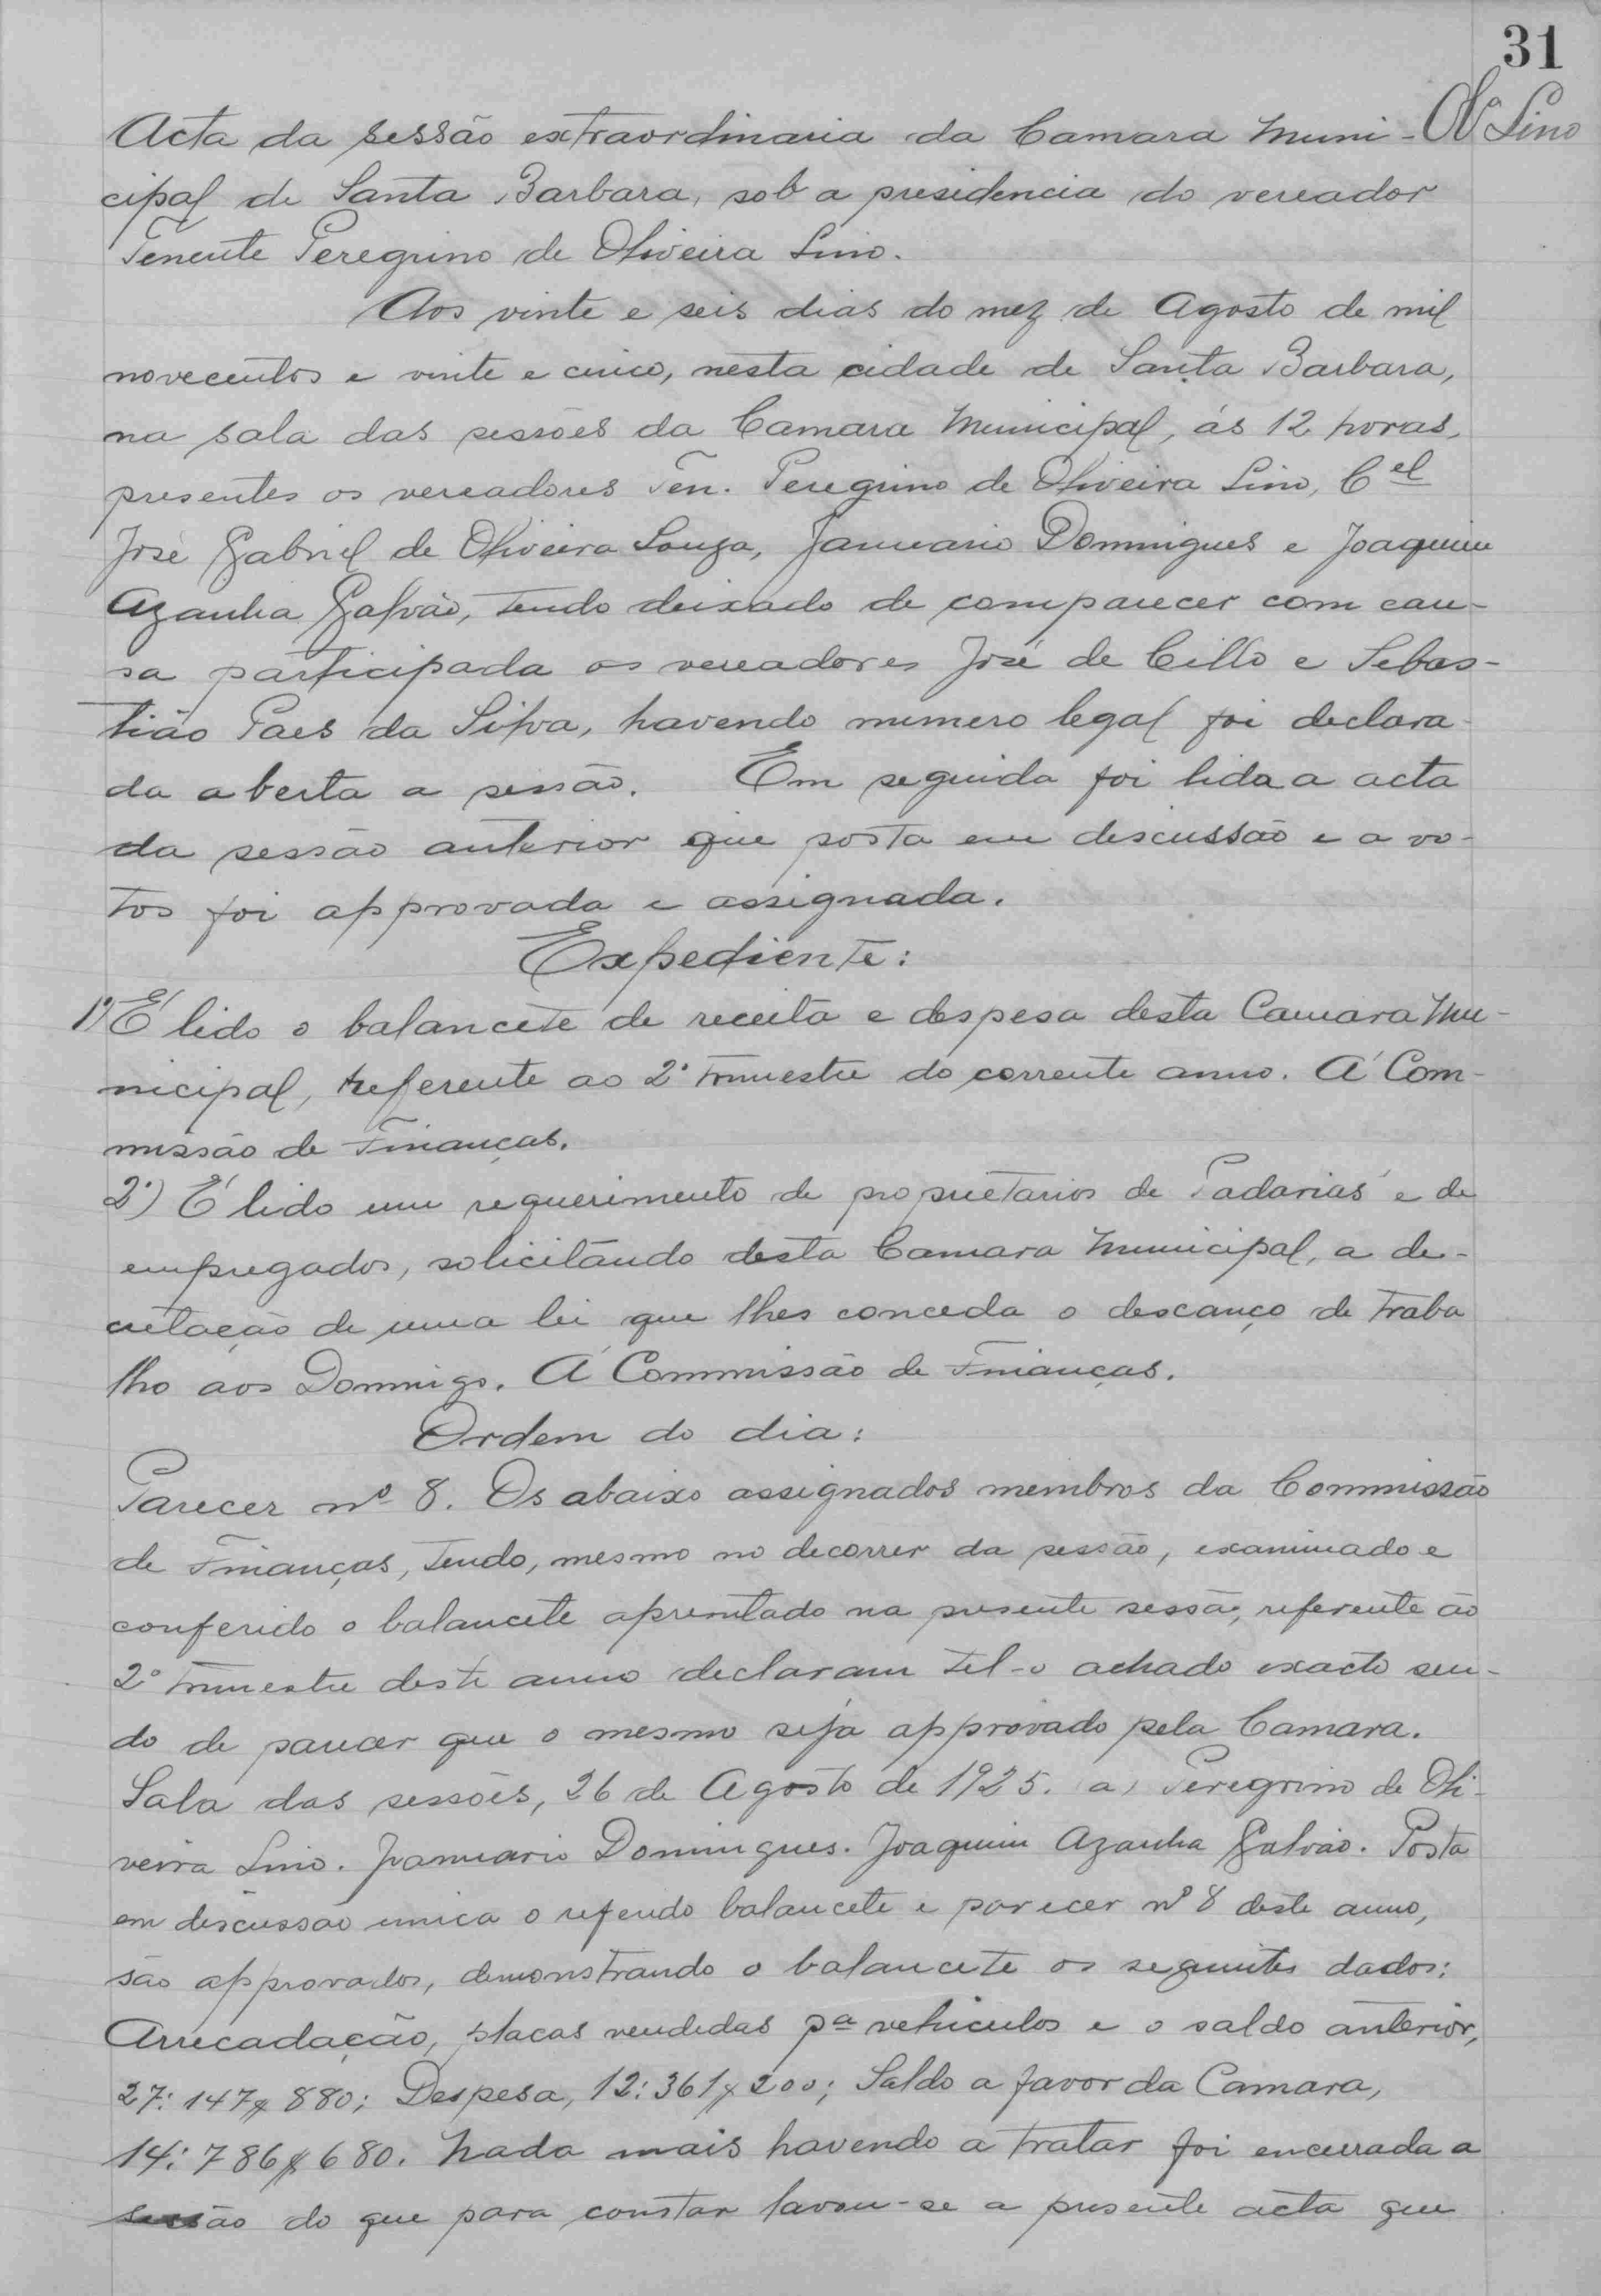 31
Ol. Lino
Acta da sessão extraordinaria da Camara Muni-
cipal de Santa Barbara, sob a presidencia do vereador
Tenente Peregrino de Oliveira Lino.
Aos vinte e seis dias do mez de Agosto de mil
novecentos e vinte e cinco, nesta cidade de Santa Barbara,
na sala das sessões da Camara Municipal, ás 12 horas,
presentes os vereadores Ten. Peregrino de Oliveira Lino, Cel
José Gabriel de Oliveira Souza, Januario Domingues e Joaquim
Azanha Galvão, tendo deixado de comparecer com cau-
sa participada os vereadores José de Cillo e Sebas-
tião Paes da Silva, havendo numero legal foi declara-
da aberta a sessão. Em seguida foi lida a acta
da sessão anterior que posta em discussão e a vo-
tos foi approvada e assignada.
Expediente:
1º) É lido o balancete de receita e despesa desta Camara Mu-
nicipal, referente ao 2º trimestre do corrente anno. Á Com-
missão de Finanças.
2º) É lido um requerimento de proprietarios de Padarias e de
empregados, solicitando desta Camara Municipal, a de-
cretação de uma lei que lhes conceda o descanço de traba
lho aos Domingo. Á Commissão de Finanças.
Ordem do dia:
Parecer nº 8. Os abaixo assignados membros da Commissão
de Finanças, tendo, mesmo no decorrer da sessão, examinado e
conferido o balancete apresentado na presente sessão, referente ao
2º trimestre deste anno declaram tel-o achado exacto sen-
do de parecer que o mesmo seja approvado pela Camara.
Sala das sessões, 26 de Agosto de 1925. a) Peregrino de Oli-
veira Lino. Januario Domingues. Joaquim Azanha Galvão. Posta
em discussão unica o referido balancete e parecer nº 8 deste anno,
são approvados, demonstrando o balancete os seguintes dados:
Arrecadação, placas vendidas pª vehiculos e o saldo anterior,
27:147$880; Despesa, 12:361$200; Saldo a favor da Camara,
14:786$680. Nada mais havendo a tratar foi encerrada a
sessão do que para constar lavou-se a presente acta que